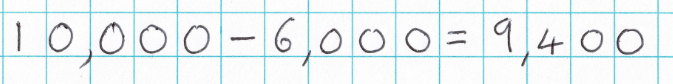 10,000 - 6,000 = 9,400